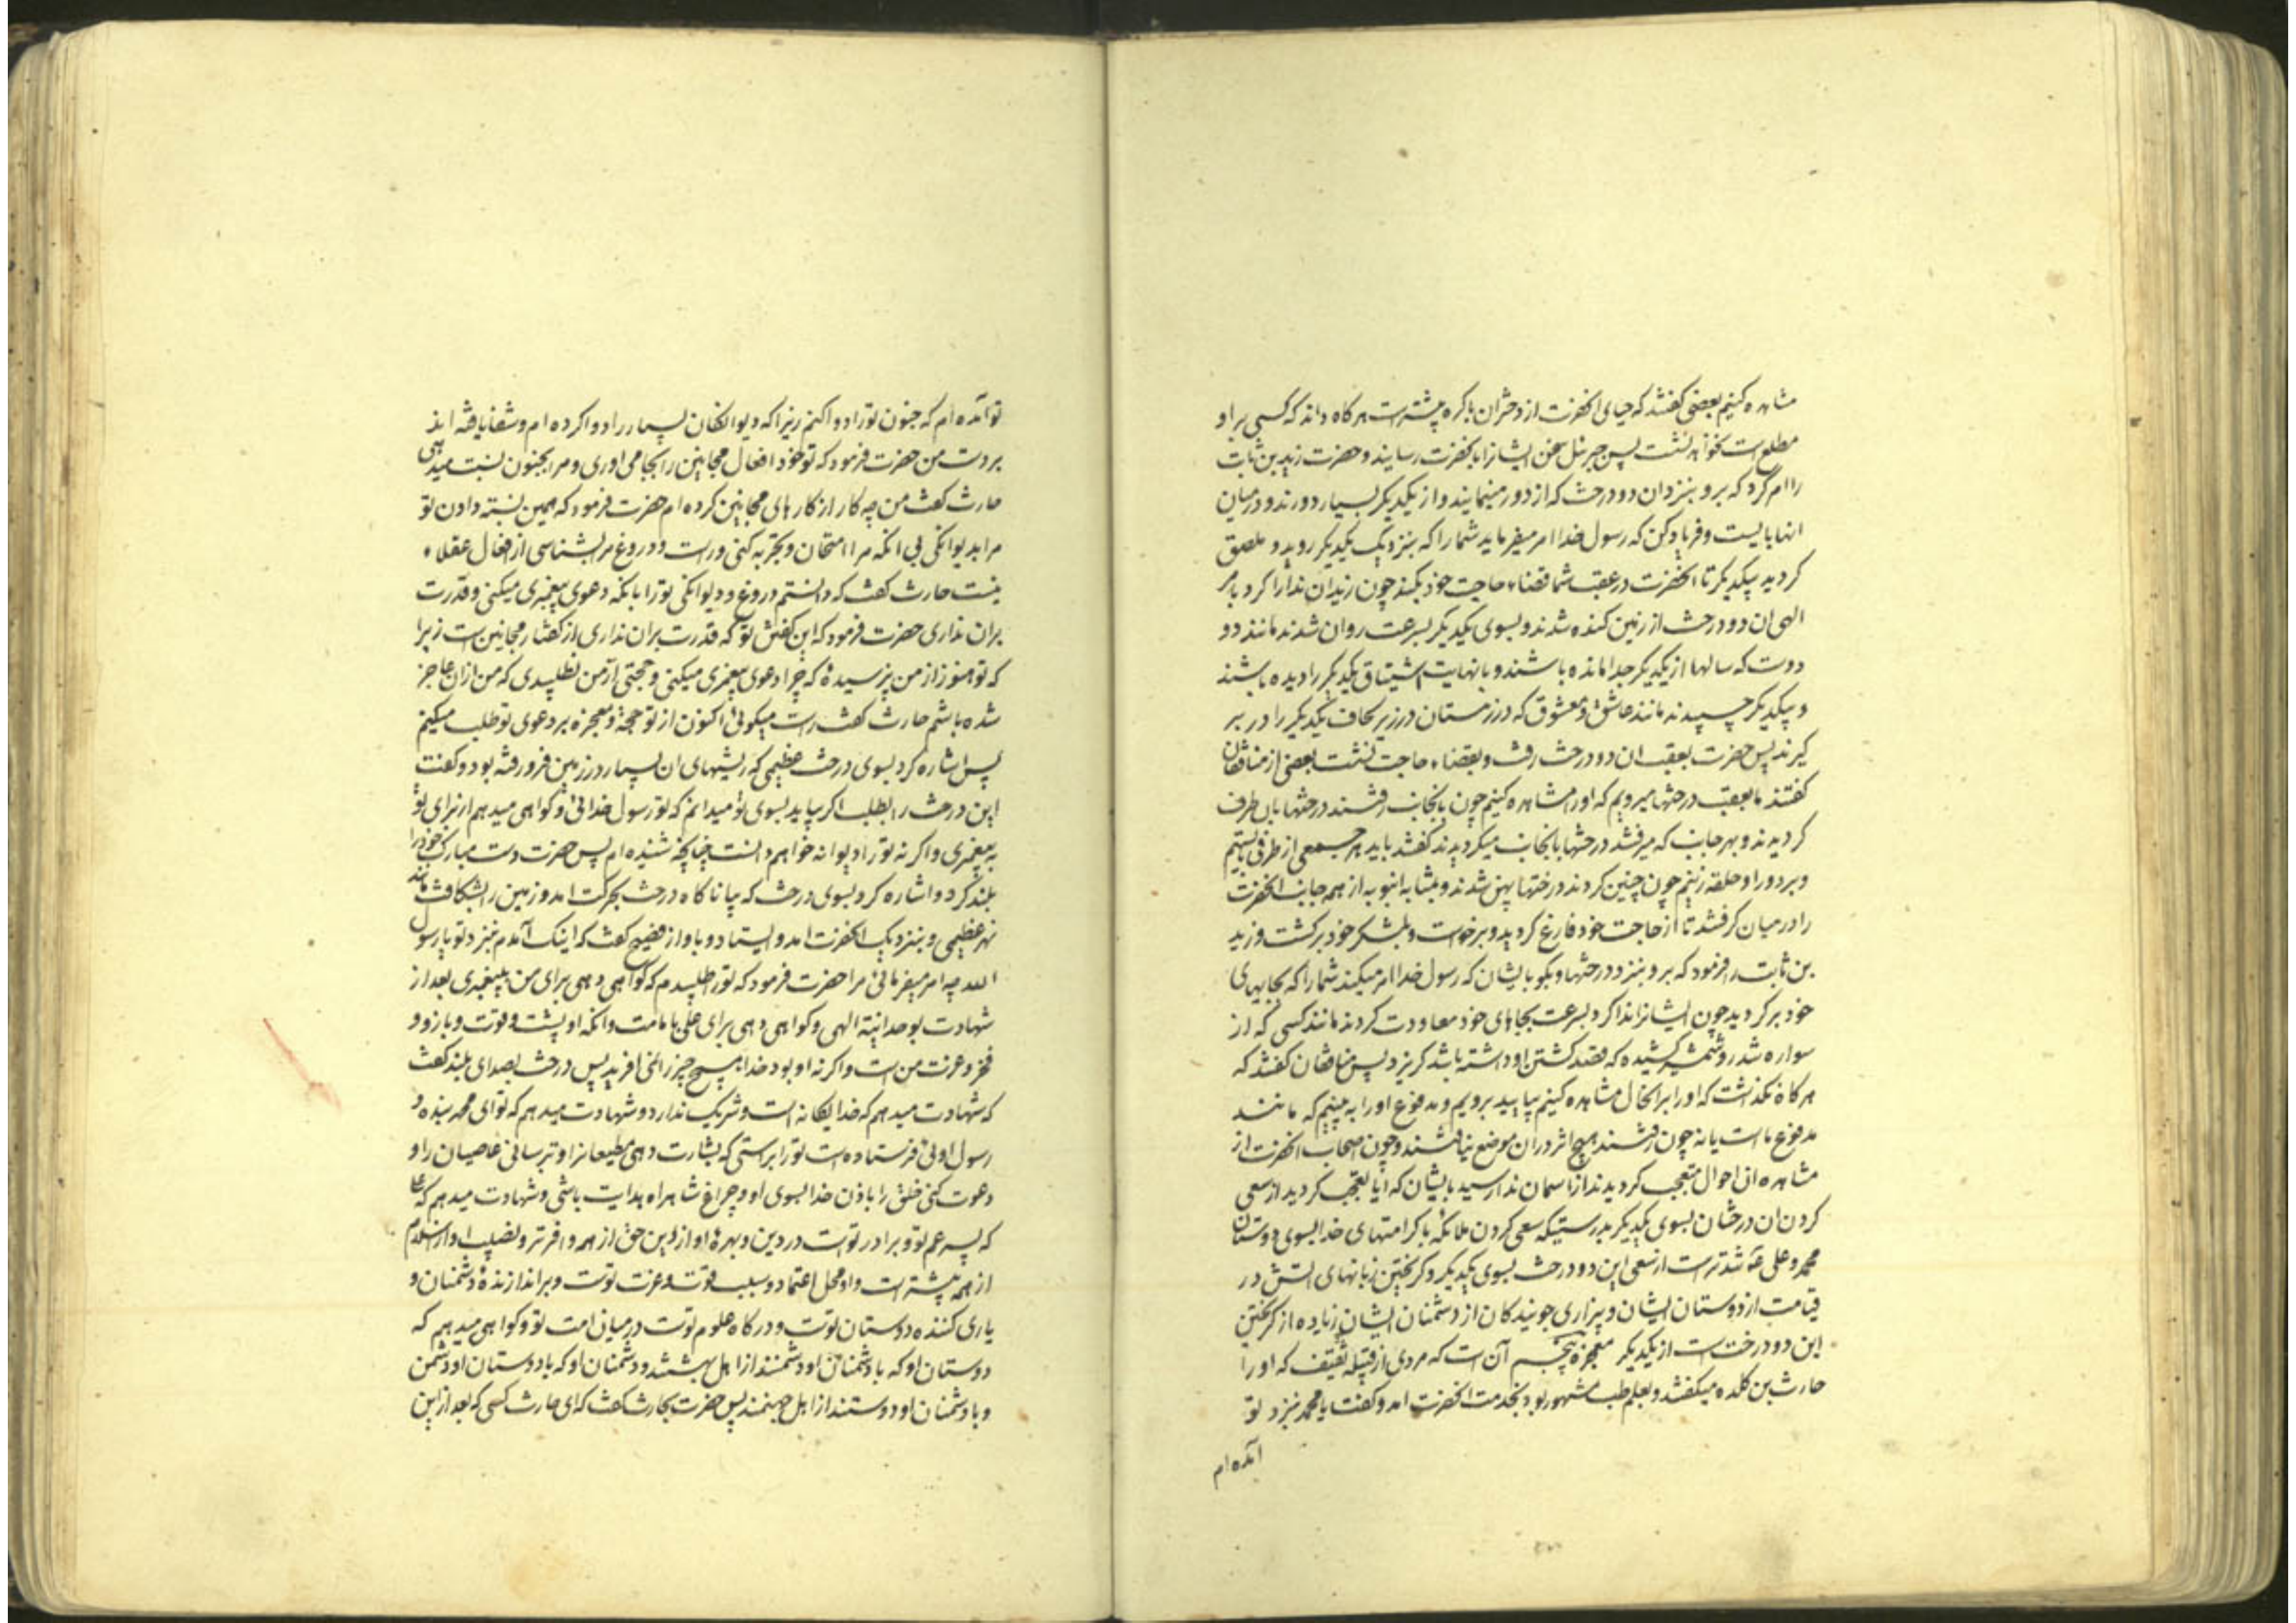 مشاهده کنیم بعضی گفتند که حیای انحضرت از دختران باکره بیشتر است هرکاه داند که کسی بر او
مطلع است نخواهد نشست پس جبرئیل سخن ایشانرا بانحضرت رسانید و حضرت زید بن ثابت
را امر کرد که برو بنزد ان دو درخت که از دور مینمایند و از یکدیکر بسیار دورند و در میان
انها بایست و فریاد کن که رسول خدا امر میفرماید شما را که بنزدیک یکدیکر روید و ملصق
کردید بیکدیکر تا انحضرت در عقب شما قضاء حاجت خود بکند چون زید ان ندا را کرد بامر
الهی ان دو درخت از زمین کنده شدند و بسوی یکدیکر بسرعت روان شدند مانند دو
دوست که سالها از یکدیکر جدا مانده باشند و با نهایت اشتیاق یکدیکر را دیده باشند
و بیکدیکر چسپیدند مانند عاشق و معشوق که در زمستان در زیر لحاف یکدیکر را در بر
کیرند پس حضرت بعقب ان دو درخت رفت و بقضاء حاجت نشست بعضی از منافقان
کفتند ما بعقب درختها میرویم که او را مشاهده کنیم چون بانجانب رفتند درختها بان طرف
کردیدند و بهر جانب که میرفتند درختها بانجانب میکردیدند کفتند باید هر جمعی از طرفی بایستیم
و بر دور او حلقه زنیم چون چنین کردند درختها پهن شدند و بمثابه انبوبه از همه جانب انحضرت
را در میان کرفتند تا از حاجت خود فارغ کردید و برخواست و بلشکر خود برکشت و زید
بن ثابت را فرمود که برو بنزد درختها و بکو بایشان که رسول خدا امر میکند شما را که بجابهای
خود برکردید چون ایشانرا ندا کرد بسرعت بجاهای خود معاودت کردند مانند کسی که از
سواره شمشیر کشیده که قصد کشتن او داشته باشد کریزد پس منافقان کفتند که
هرکاه نکذاشت که او را بر انحال مشاهده کنیم بیایید برویم و مدفوع او را به بینیم که مانند
مدفوع ما است یا نه چون رفتند هیچ اثر در ان موضع نیافتند و چون اصحاب انحضرت از
مشاهده ان احوال متعجب کردیدند از اسمان ندا رسید بایشان که ایا تعجب کردید از سعی
کردن ان درختان بسوی یکدیکر بدرستیکه سعی کردن ملائکه با کرامتهای خدا بسوی دوستان
محمد و علی شدیدتر است از سعی این دو درخت بسوی یکدیکر و کریختن زبانهای اتش در
قیامت از دوستان ایشان و بیزاری جویندکان از دشمنان ایشان زیاده از کریختن
این دو درخت است از یکدیکر معجزه پنجم آن است که مردی از قبیله ثقیف که او را
حارث بن کلده میکفتند و بعلم طب مشهور بود بخدمت انحضرت امد و کفت یا محمد بنزد تو
آمده ام
تو آمده ام که جنون تو را دوا کنم زیرا که دیوانکان بسیار را دوا کرده ام و شفا یافته اند
بر دست من حضرت فرمود که تو خود افعال مجانین را بجا می اوری و مرا بجنون نسبت میدهی
حارث کفت من چه کار از کارهای مجانین کرده ام حضرت فرمود که همین نسبت دادن تو
مرا بدیوانکی بی انکه مرا امتحان و تجربه کنی و راست و دروغ مرا بشناسی از افعال عقلاء
نیست حارث کفت که دانستم دروغ و دیوانکی تو را بانکه دعوی پیغمبری میکنی و قدرت
بران نداری حضرت فرمود که این کفتن تو که قدرت بران نداری از کفتار مجانین است زیرا
که تو هنوز از من نپرسیدهٔ که چرا دعوی پیغمبری میکنی و حجتی از من نطلبیدی که من از ان عاجز
شده باشم حارث کفت راست میکوئی اکنون از تو حجة و معجزه بر دعوی تو طلب میکنم
پس اشاره کرد بسوی درخت عظیمی که ریشهای ان بسیار در زمین فرو رفته بود و کفت
این درخت را بطلب اکر بیاید بسوی تو میدانم که تو رسول خدائی و کواهی میدهم از برای تو
به پیغمبری و اکر نه تو را دیوانه خواهم دانست چنانچه شنیده ام پس حضرت دست مبارک خود را
بلند کرد و اشاره کرد بسوی درخت که بیا ناکاه درخت بحرکت امد و زمین را بشکافت مانند
نهر عظیمی و بنزدیک انحضرت امد و ایستاد و باواز فصیح کفت که اینک آمدم بنزد تو یا رسول
الله چه امر میفرمائی مرا حضرت فرمود که تو را طلبیدم که کواهی دهی برای من بپیغمبری بعد از
شهادت بوحدانیة الهی و کواهی دهی برای علی بامامت و انکه او پشت و قوت و بازو و
فخر و عزت من است و اکر نه او بود خدا هیچ چیز را نمی افرید پس درخت بصدای بلند کفت
که شهادت میدهم که خدا یکانه است و شریک ندارد و شهادت میدهم که تو ای محمد بنده و
رسول اوئی فرستاده است تو را براستی که بشارت دهی مطیعانرا و بترسانی عاصیان را و
دعوت کنی خلق را باذن خدا بسوی او و چراغ شاهراه هدایت باشی و شهادت میدهم که علی
که پسر عم تو و برادر تو است در دین و بهرهٔ او از دین حق از همه وافرتر و نصیب او از اسلام
از همه بیشتر است و او محل اعتماد و سبب قوت و عزت تو است و براندازندهٔ دشمنان و
یاری کننده دوستان تو است و درکاه علوم تو است در میان امت تو و کواهی میدهم که
دوستان او که با دشمنان او دشمنند از اهل بهشتند و دشمنان او که با دوستان او دشمن
و با دشمنان او دوستند از اهل جهنمند پس حضرت بحارث کفت که ای حارث کسی که بعد از این